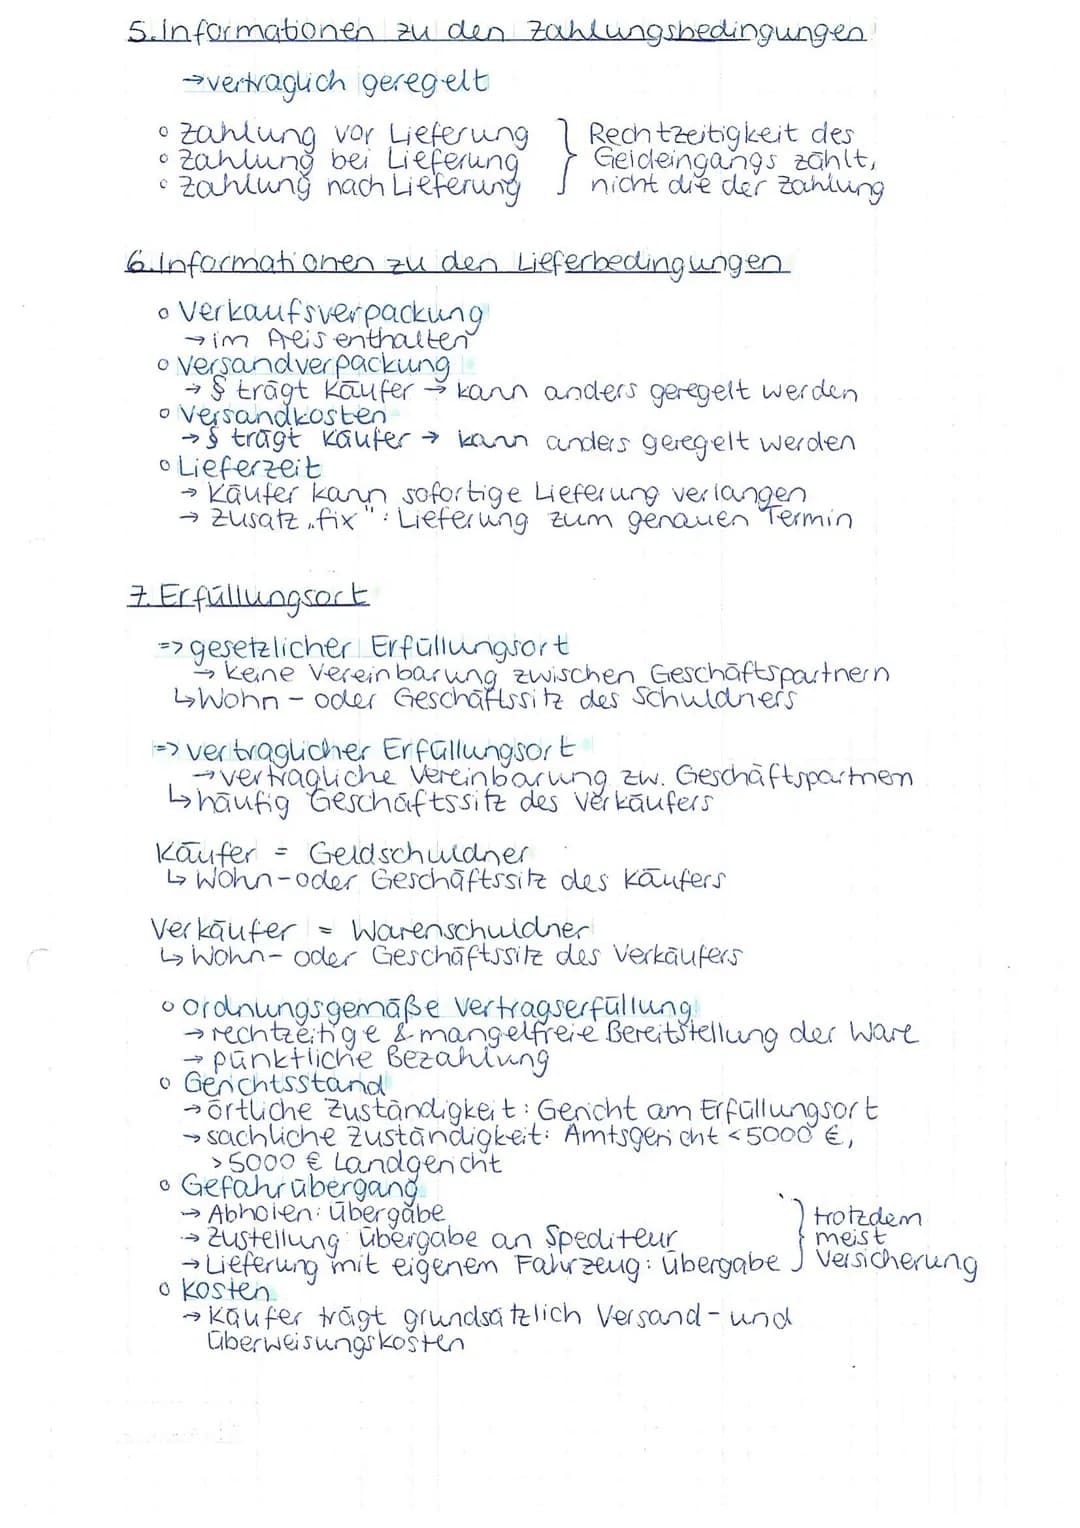 5. Informationen zu den Zahlungsbedingungen
→ vertraglich geregelt
° Zahlung vor Lieferung } Rechtzeitigkeit des
° Zahlung bei Lieferung } Geldeingangs zählt,
° Zahlung nach Lieferung } nicht die der Zahlung
6. Informationen zu den Lieferbedingungen
° Verkaufsverpackung
→ im Preis enthalten
° Versandverpackung
→ § trägt Käufer → kann anders geregelt werden
° Versandkosten
→ § trägt Käufer → kann anders geregelt werden
° Lieferzeit
→ Käufer kann sofortige Lieferung verlangen
→ Zusatz „fix": Lieferung zum genauen Termin
7. Erfüllungsort
=> gesetzlicher Erfüllungsort
→ keine Vereinbarung zwischen Geschäftspartnern
↳ Wohn- oder Geschäftssitz des Schuldners
=> vertraglicher Erfüllungsort
→ vertragliche Vereinbarung zw. Geschäftspartnern
↳ häufig Geschäftssitz des Verkäufers
Käufer = Geldschuldner
↳ Wohn- oder Geschäftssitz des Käufers
Verkäufer = Warenschuldner
↳ Wohn- oder Geschäftssitz des Verkäufers
° ordnungsgemäße Vertragserfüllung
→ rechtzeitige & mangelfreie Bereitstellung der Ware
→ pünktliche Bezahlung
° Gerichtsstand
→ örtliche Zuständigkeit: Gericht am Erfüllungsort
→ sachliche Zuständigkeit: Amtsgericht <5000 €,
>5000 € Landgericht
° Gefahrübergang
→ Abholen: Übergabe } trotzdem
→ Zustellung: Übergabe an Spediteur } meist
→ Lieferung mit eigenem Fahrzeug: Übergabe } Versicherung
° Kosten
→ Käufer trägt grundsätzlich Versand- und
Überweisungskosten